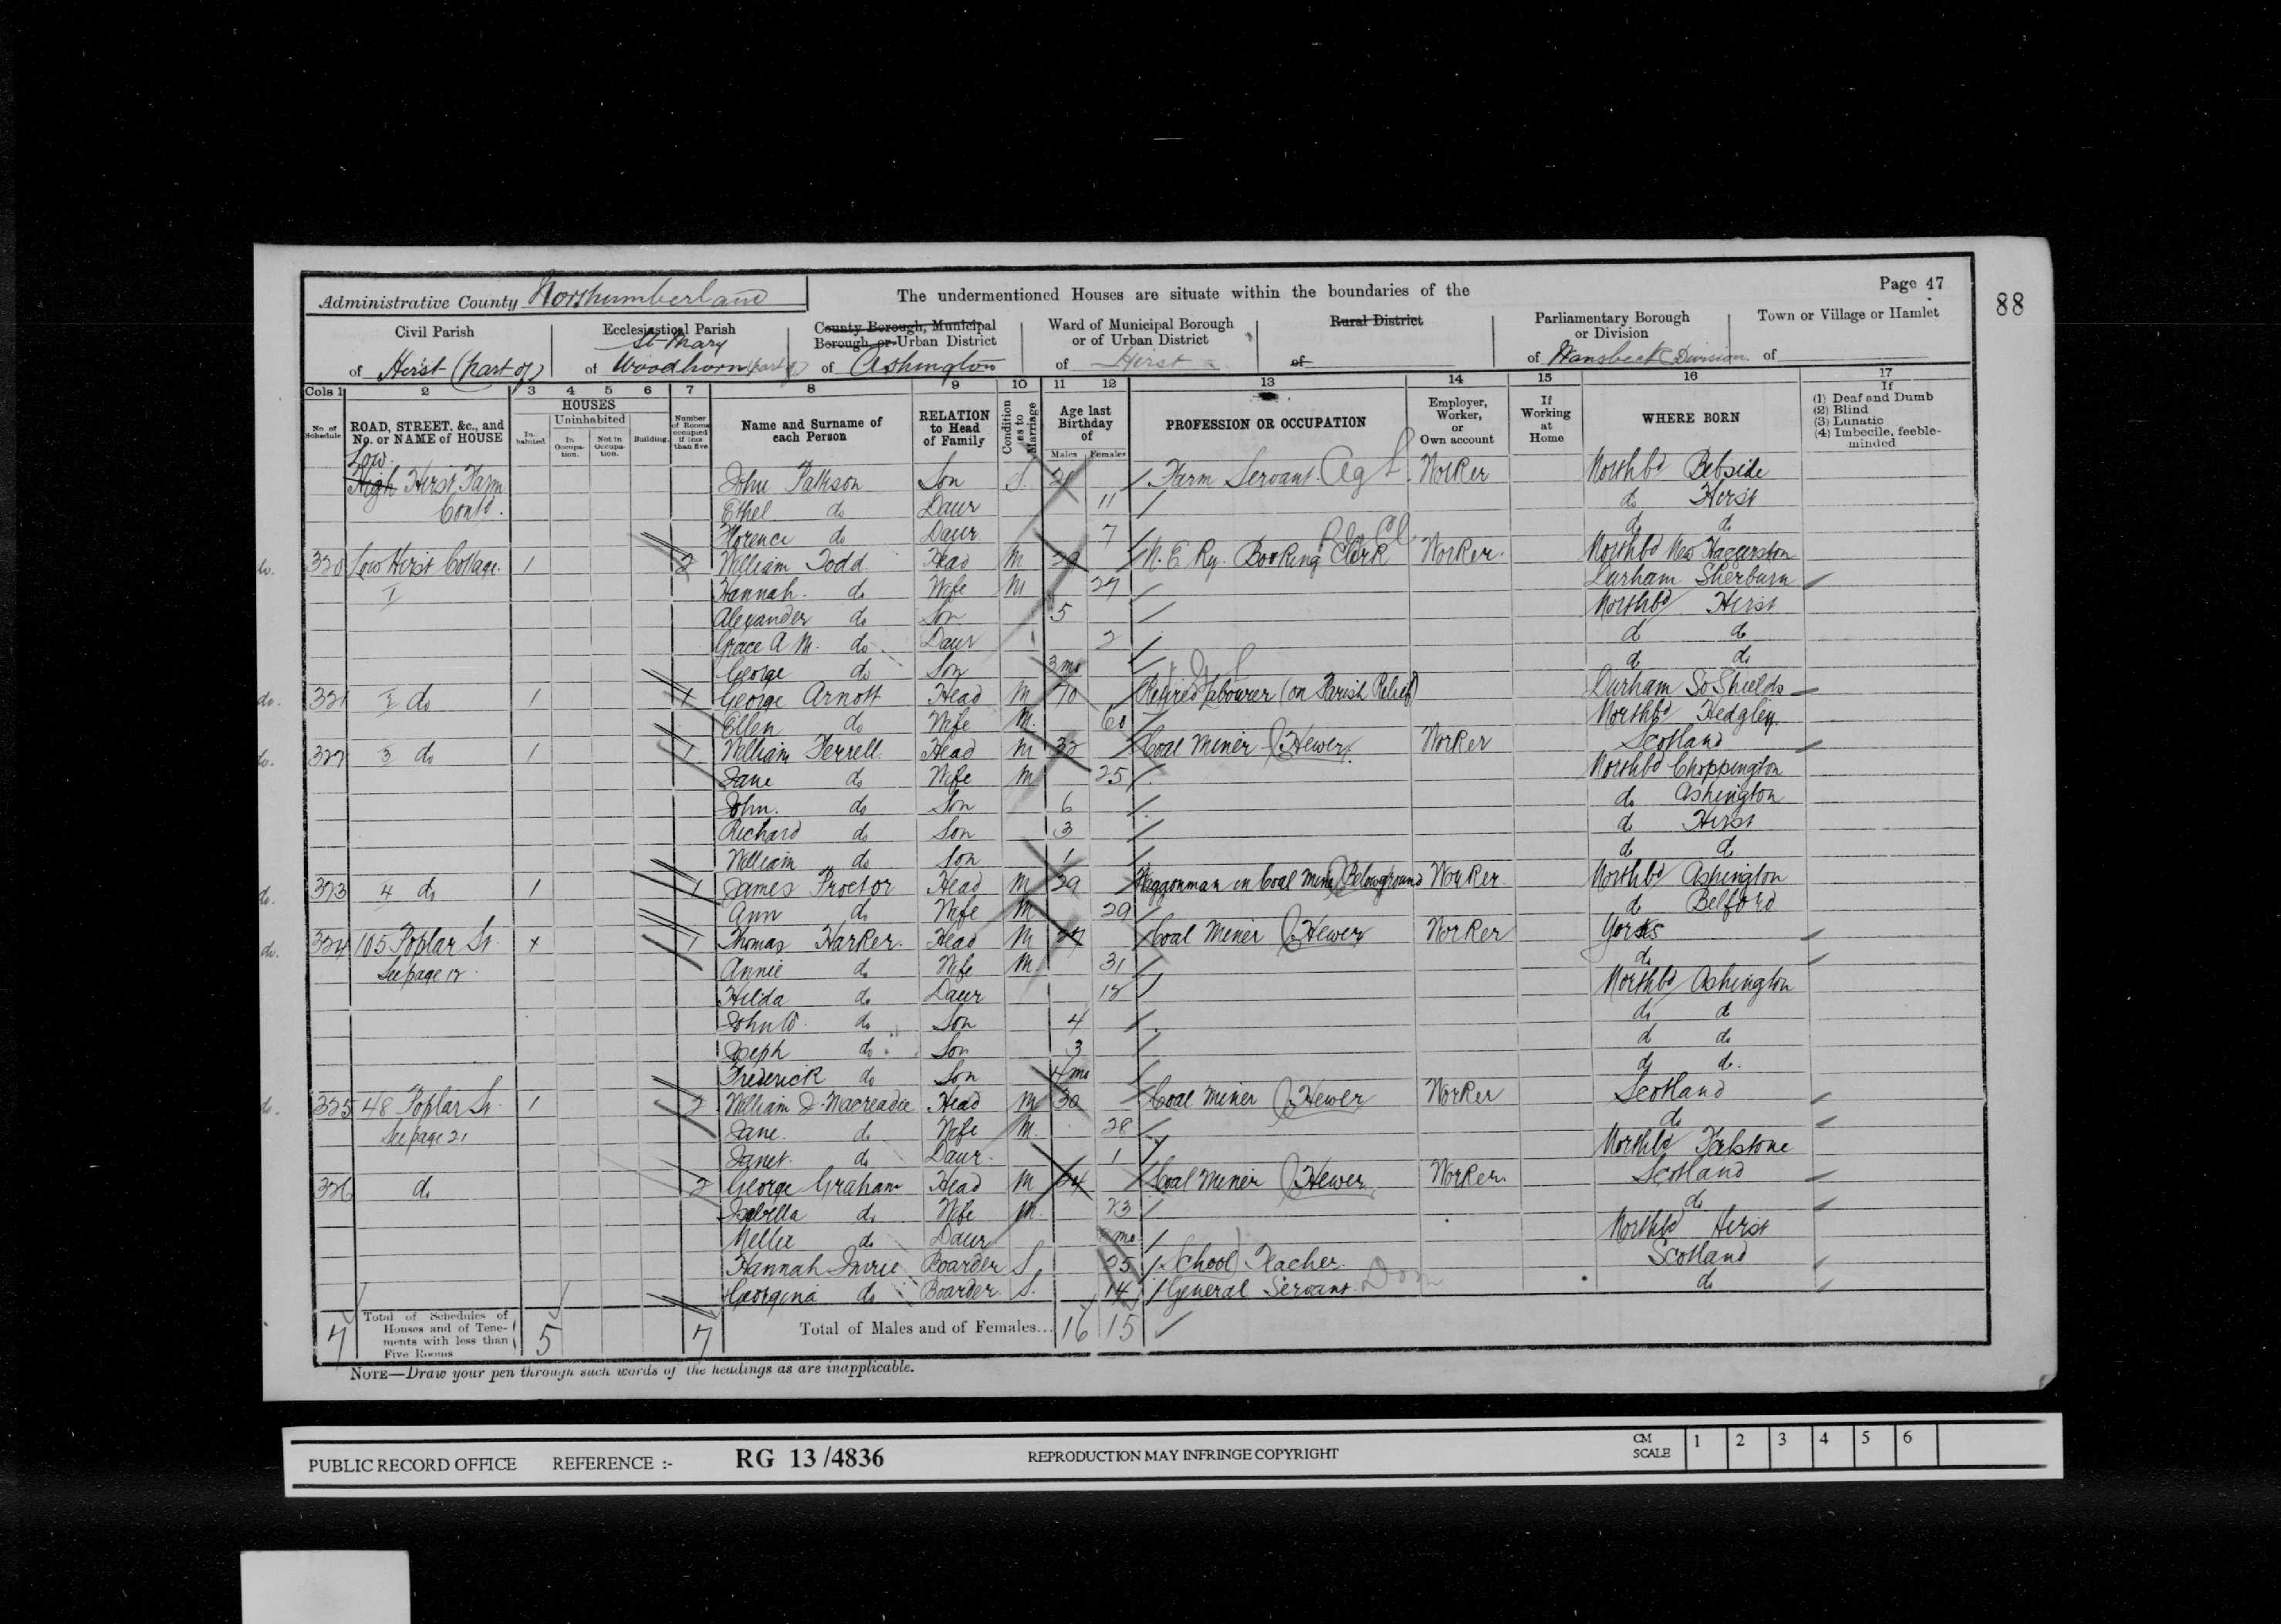 Administrative County Northumberland
The undermentioned Houses are situate within the boundaries of the
Page 47
88
Civil Parish of Hirst (part of)
Ecclesiastical Parish of St Mary Woodhorn (part of)
County Borough, Municipal Borough or Urban District of Ashington
Ward of Municipal Borough or of Urban District of Hirst
Rural District of
Parliamentary Borough or Division of Wansbeck Division
Town or Village or Hamlet of
Cols 1 2 3 4 5 6 7 8 9 10 11 12 13 14 15 16 17
No. of Schedule
ROAD, STREET, &c., and No. or NAME of HOUSE
HOUSES
Inhabited
Uninhabited
In Occupation.
Not in Occupation.
Building.
Number of Rooms occupied if less than five
Name and Surname of each Person
RELATION to Head of Family
Condition as to Marriage
Age last Birthday of
Males Females
PROFESSION OR OCCUPATION
Employer, Worker, or Own account
If Working at Home
WHERE BORN
If
(1) Deaf and Dumb
(2) Blind
(3) Lunatic
(4) Imbecile, feeble-minded
Low
High Hirst Farm John Pattison Son S. 21 Farm Servant Ag L Worker Northbd Bebside
Contd. Ethel do Daur 11 do Hirst
Florence do Daur 7 do do
320 Low Hirst Cottage 1 2 William Todd Head M 29 N. E. Ry. Booking Clerk Worker Northbd New Haggerston
I Hannah do Wife M 27 Durham Sherburn
Alexander do Son 5 Northbd Hirst
Grace A M. do Daur 2 do do
George do Son 3 mo do do
do. 321 do 1 1 George Arnott Head M 70 Retired Labourer (on Parish Relief) Durham So Shields
Ellen do Wife M. 60 Northbd Hedgley
do. 322 3 do 1 1 William Ferrell Head M 32 Coal Miner Hewer Worker Scotland
Jane do Wife M 25 Northbd Choppington
John. do Son 6 do Ashington
Richard do Son 3 do Hirst
William do Son 1 do do
do. 323 4 do 1 1 James Proctor Head M 29 Waggonman in Coal Mine Belowground Worker Northbd Ashington
Ann do Wife M 29 do Belford
do. 324 105 Poplar St. + 1 Thomas Harker. Head M Coal Miner Hewer Worker Yorks
See page 12 Annie do Wife M 31 do
Hilda do Daur 12 Northbd Ashington
John W. do Son 4 do do
Joseph do Son 3 do do
Frederick do Son 4 mo do do.
do. 325 48 Poplar St. 1 2 William J. Macreadie Head M 30 Coal Miner Hewer Worker Scotland
See page 21 Jane. do Wife M. 28 do
Janet. do Daur 1 Northbd Falstone
326 do 2 George Graham Head M 24 Coal Miner Hewer Worker. Scotland
Isabella do Wife M. 23 do
Nellie do Daur mo Northbd Hirst
Hannah Imrie Boarder S 25 School Teacher. Scotland
Georgina do Boarder S. 14 General Servant Dom do
7 Total of Schedules of Houses and of Tenements with less than Five Rooms 5 7 Total of Males and of Females... 16 15
NOTE—Draw your pen through such words of the headings as are inapplicable.
PUBLIC RECORD OFFICE REFERENCE :- RG 13/4836 REPRODUCTION MAY INFRINGE COPYRIGHT CM SCALE 1 2 3 4 5 6